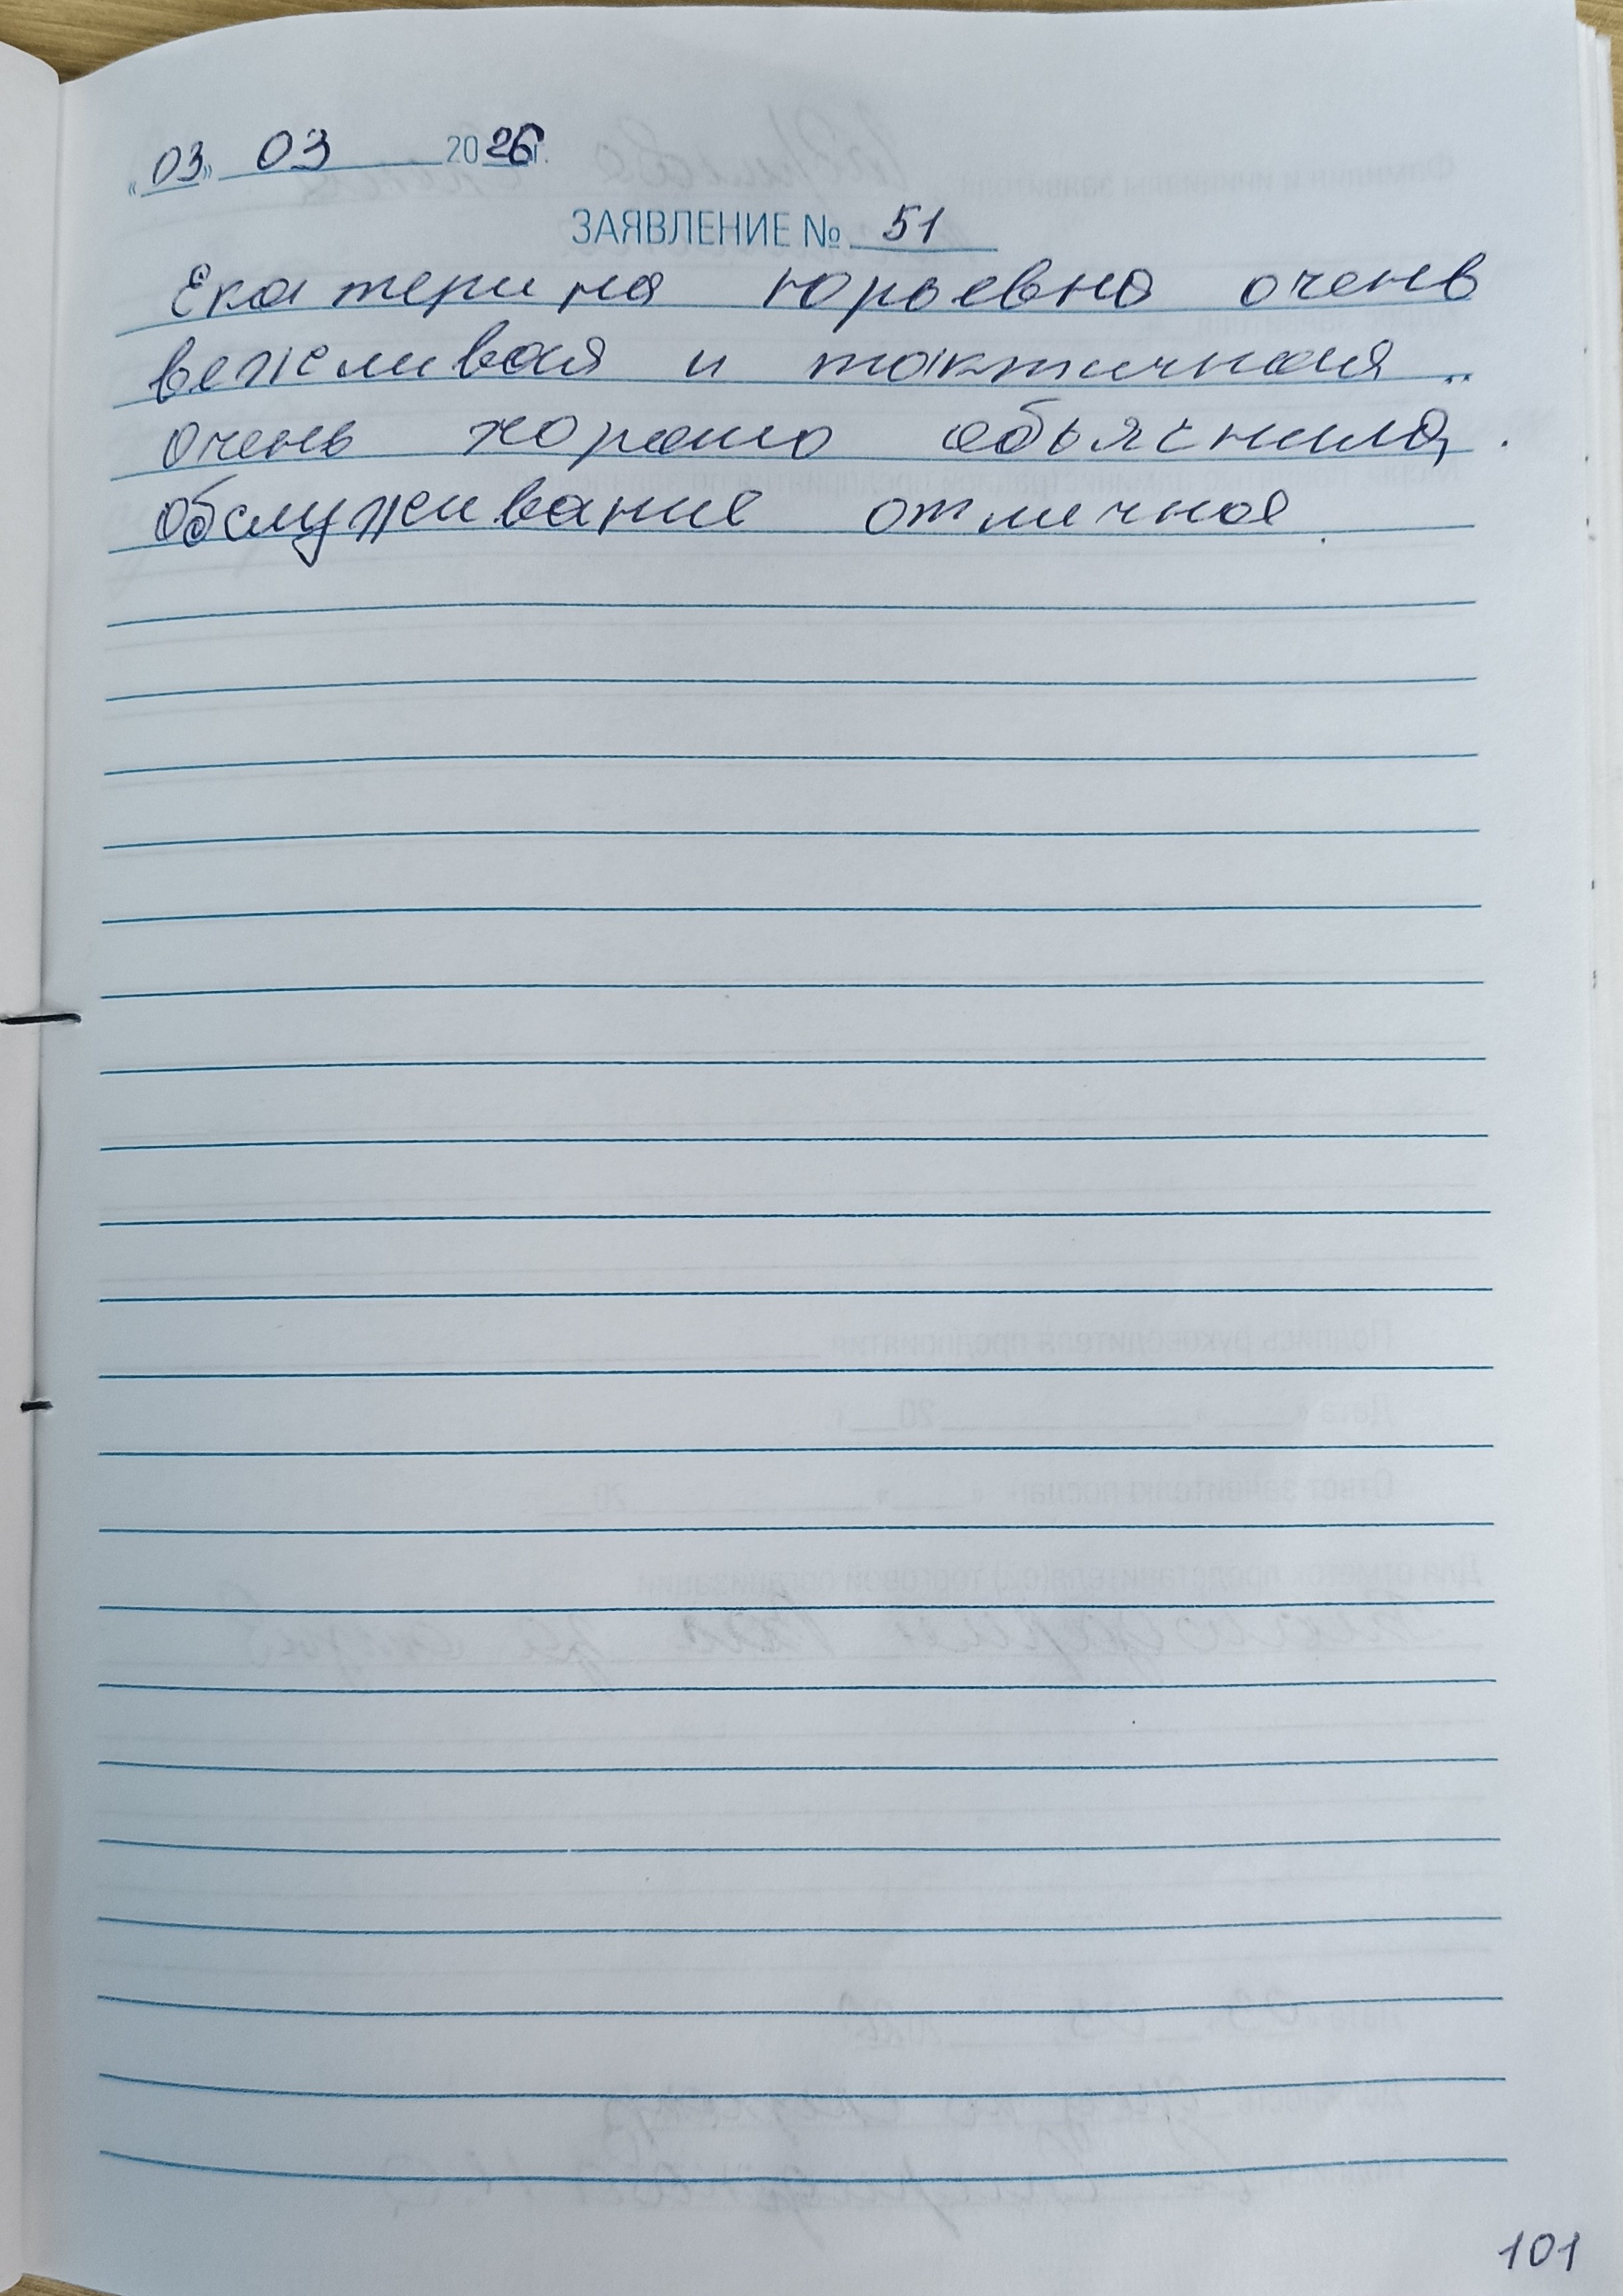 «03» 03 2026г.
ЗАЯВЛЕНИЕ № 51
Екатерина юрьевна очень
вежливая и тактичная..
очень хорошо обьяснила,
обслуживание отличное.
101